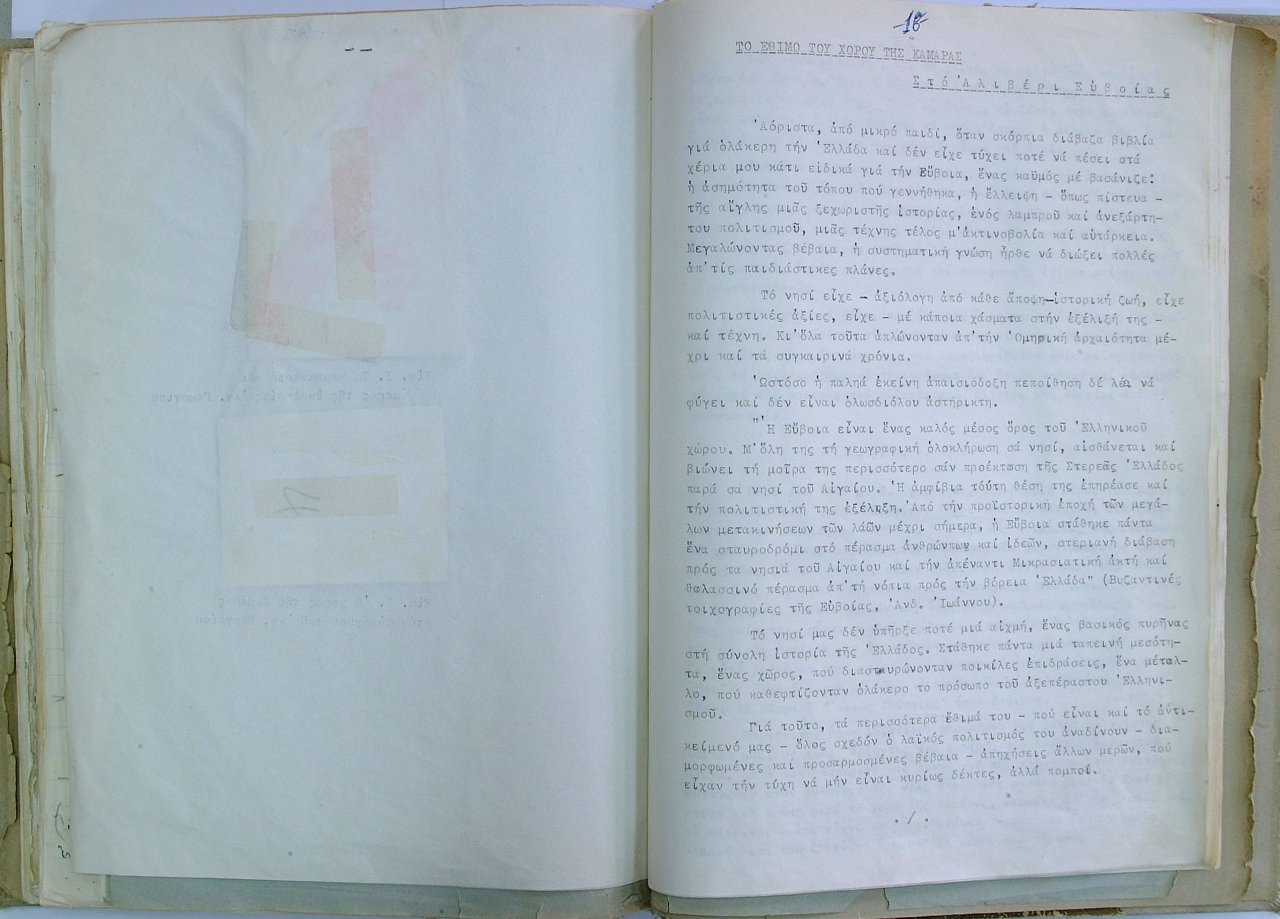 -18-
ΤΟ ΕΘΙΜΟ ΤΟΥ ΧΟΡΟΥ ΤΗΣ ΚΑΜΑΡΑΣ
Στό Ἀλιβέρι Εὐβοίας
Ἀόριστα, ἀπό μικρό παιδί, ὅταν σκόρπια διάβαζα βιβλία
γιά ὁλάκερη τήν Ἑλλάδα καί δέν εἶχε τύχει ποτέ νά πέσει στά
χέρια μου κάτι εἰδικά γιά τήν Εὔβοια, ἕνας καϋμός μέ βασάνιζε:
ἡ ἀσημότητα τοῦ τόπου πού γεννήθηκα, ἡ ἔλλειψη - ὅπως πίστευα -
τῆς αἴγλης μιᾶς ξεχωριστῆς ἱστορίας, ἑνός λαμπροῦ καί ἀνεξάρτη-
του πολιτισμοῦ, μιᾶς τέχνης τέλος μ'ἀκτινοβολία καί αὐτάρκεια.
Μεγαλώνοντας βέβαια, ἡ συστηματική γνώση ἦρθε νά διώξει πολλές
ἀπ'τίς παιδιάστικες πλάνες.
Τό νησί εἶχε - ἀξιόλογη ἀπό κάθε ἄποψη-ἱστορική ζωή, εἶχε
πολιτιστικές ἀξίες, εἶχε - μέ κάποια χάσματα στήν ἐξέλιξή της -
καί τέχνη. Κι'ὅλα τοῦτα ἁπλώνονταν ἀπ'τήν Ὁμηρική ἀρχαιότητα μέ-
χρι καί τά συγκαιρινά χρόνια.
Ὡστόσο ἡ παληά ἐκείνη ἀπαισιόδοξη πεποίθηση δέ λέει νά
φύγει καί δέν εἶναι ὁλωσδιόλου ἀστήρικτη.
"Ἡ Εὔβοια εἶναι ἕνας καλός μέσος ὅρος τοῦ Ἑλληνικοῦ
χώρου. Μ'ὅλη της τή γεωγραφική ὁλοκλήρωση σά νησί, αἰσθάνεται καί
βιώνει τή μοῖρα της περισσότερο σάν προέκταση τῆς Στερεᾶς Ἑλλάδος
παρά σα νησί τοῦ Αἰγαίου. Ἡ ἀμφίβια τούτη θέση της ἐπηρέασε καί
τήν πολιτιστική της ἐξέλιξη. Ἀπό τήν προϊστορική ἐποχή τῶν μεγά-
λων μετακινήσεων τῶν λαῶν μέχρι σήμερα, ἡ Εὔβοια στάθηκε πάντα
ἕνα σταυροδρόμι στό πέρασμα ἀνθρώπων καί ἰδεῶν, στεριανή διάβαση
πρός τα νησιά τοῦ Αἰγαίου καί τήν ἀπέναντι Μικρασιατική ἀκτή καί
θαλασσινό πέρασμα ἀπ'τή νότια πρός τήν βόρεια Ἑλλάδα" (Βυζαντινές
τοιχογραφίες τῆς Εὐβοίας, Ἀνδ. Ἰωάννου).
Τό νησί μας δέν ὑπῆρξε ποτέ μιά αἰχμή, ἕνας βασικός πυρῆνας
στή σύνολη ἱστορία τῆς Ἑλλάδος. Στάθηκε πάντα μιά ταπεινή μεσότη-
τα, ἕνας χῶρος, πού διασταυρώνονταν ποικίλες ἐπιδράσεις, ἕνα μέταλ-
λο, πού καθεφτίζονταν ὁλάκερο το πρόσωπο τοῦ ἀξεπέραστου Ἑλληνι-
σμοῦ.
Γιά τοῦτο, τά περισσότερα ἔθιμά του - πού εἶναι καί τό ἀντι-
κείμενό μας - ὅλος σχεδόν ὁ λαϊκός πολιτισμός του ἀναδίνουν - δια-
μορφωμένες καί προσαρμοσμένες βέβαια - ἀπηχήσεις ἄλλων μερῶν, πού
εἶχαν τήν τύχη νά μήν εἶναι κυρίως δέκτες, ἀλλά πομποί.
./.